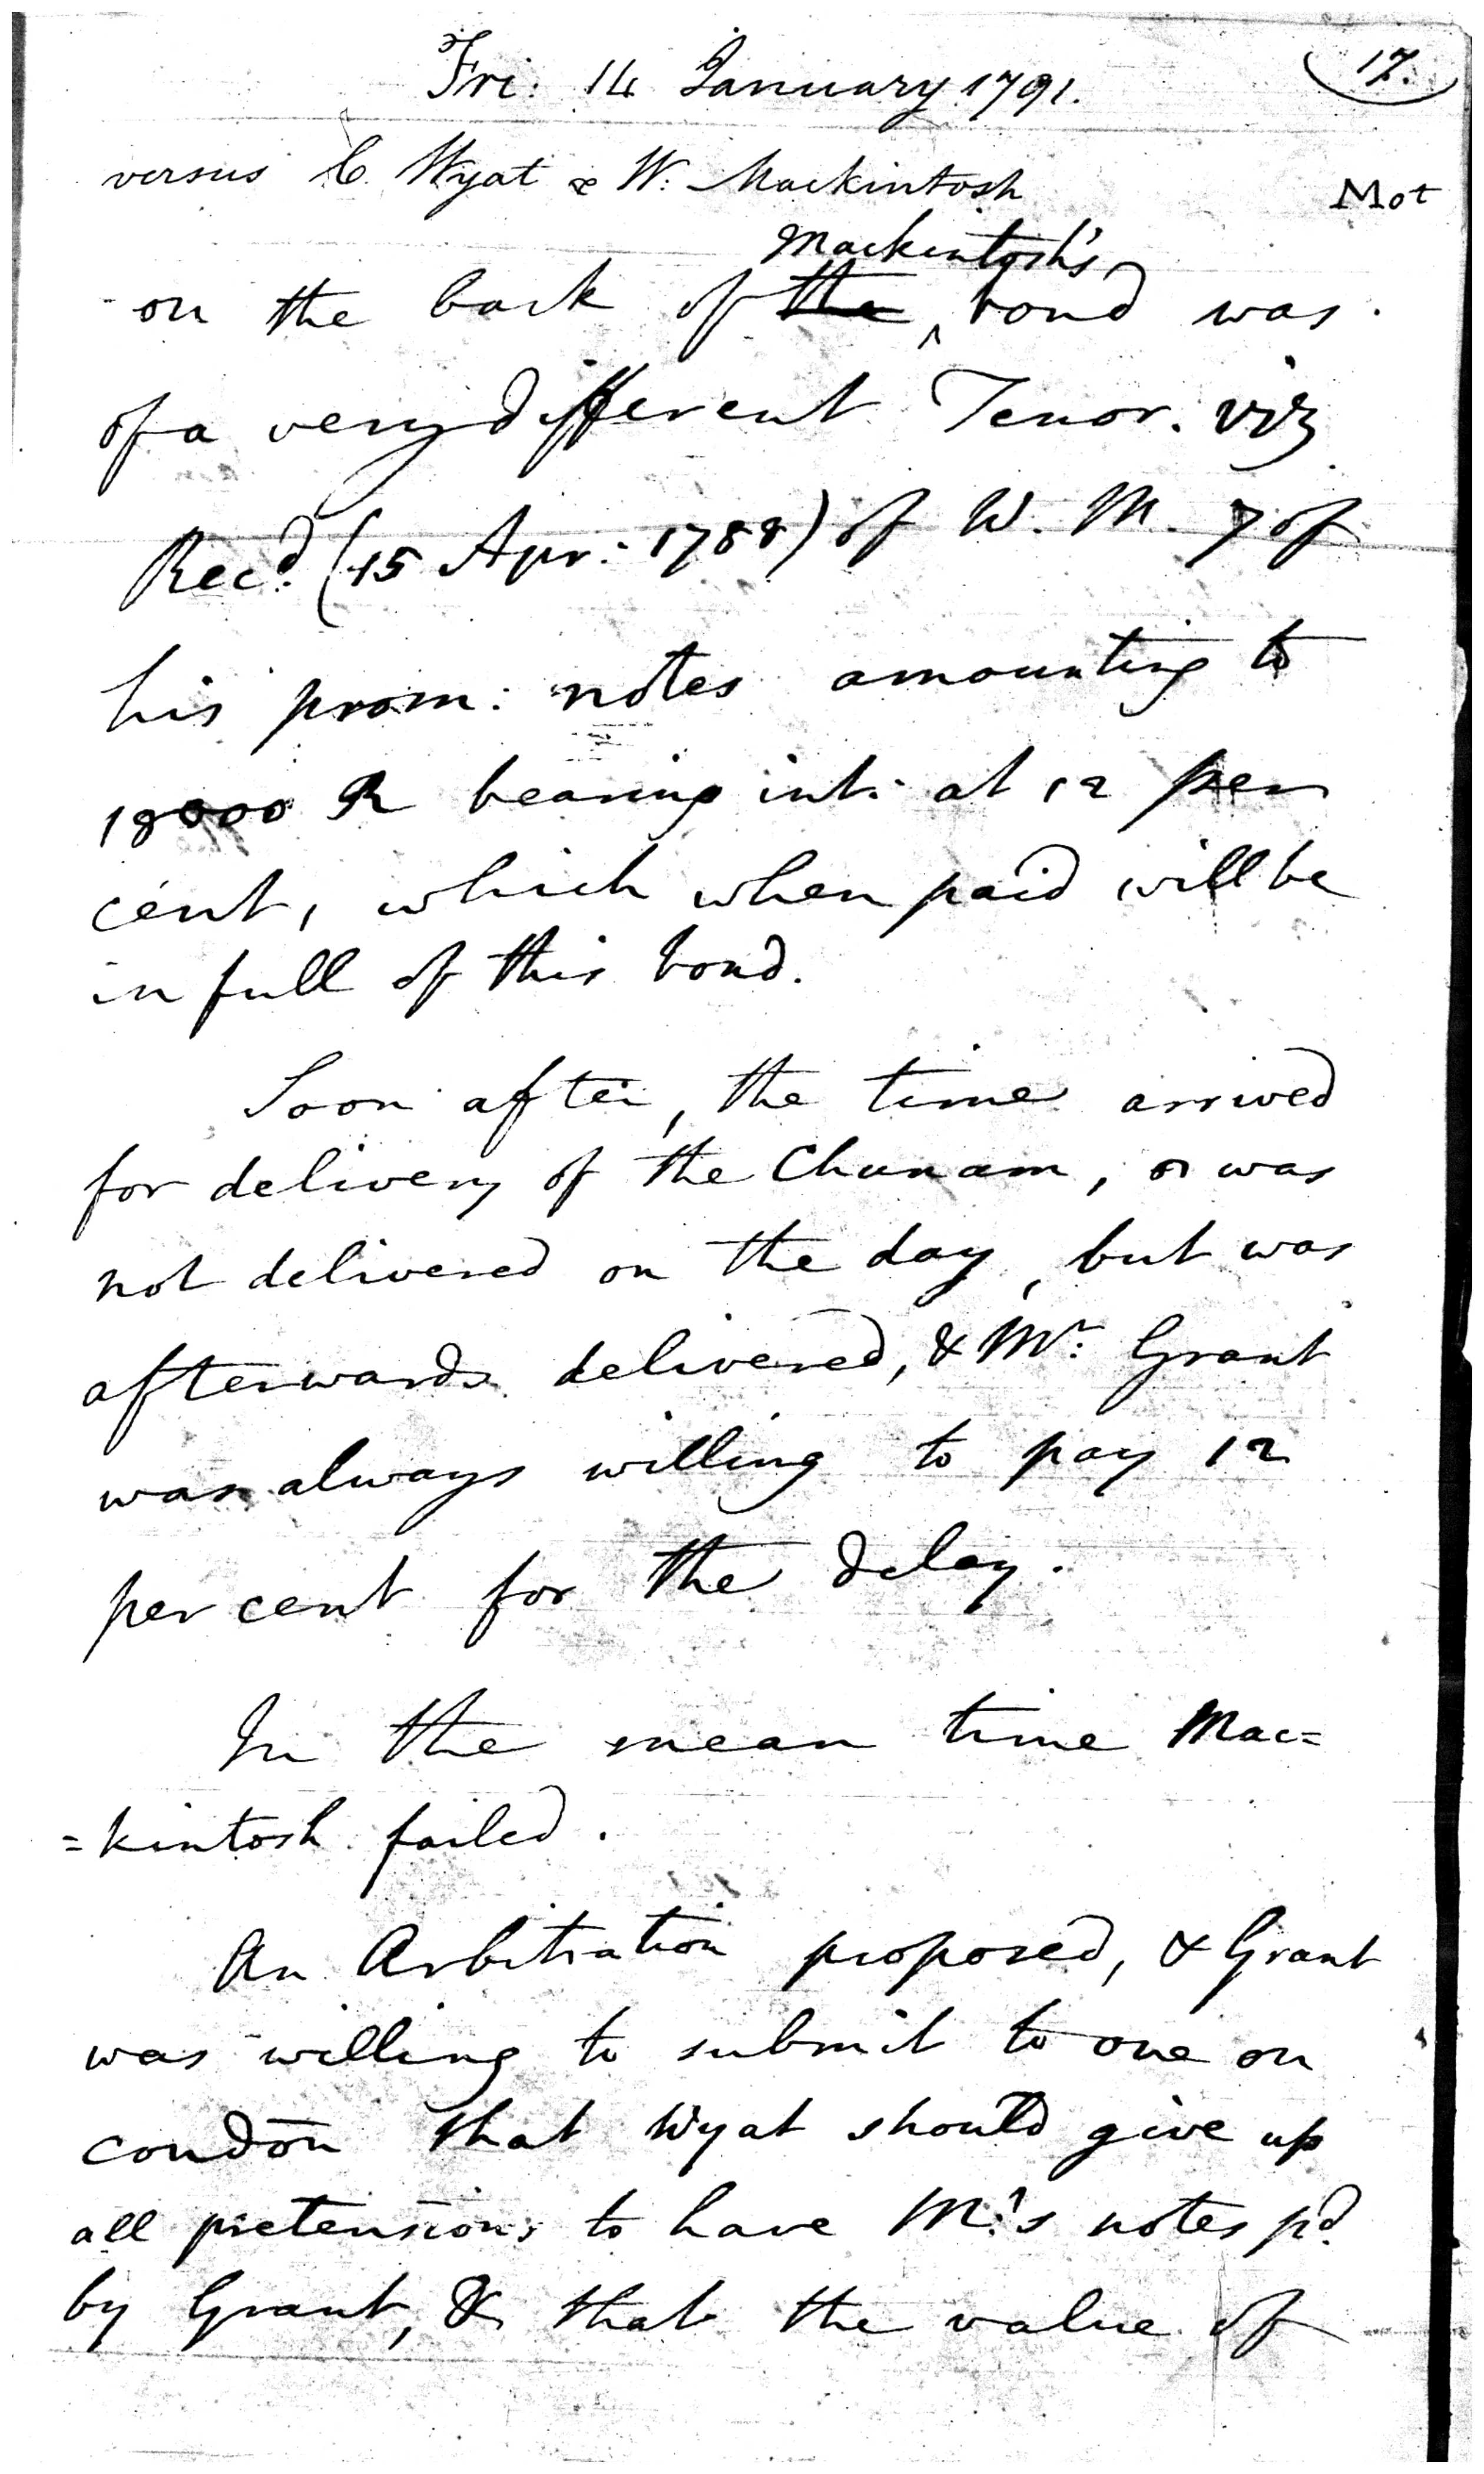 Fri: 14 January 1791.
17.
versus C. Wyat & W: Mackintosh
Mot
Mackintosh's
on the back of the ^ bond was
of a very different Tenor. viz
Rec.d (15 Apr: 1788) of W. M. 7 of
his prom: notes amounting to
18000 R bearing int: at 12 per
cent, which when paid will be
in full of this bond.
Soon after, the time arrived
for delivery of the Chunam, or was
not delivered on the day, but was
afterwards delivered, & Mr: Grant
was always willing to pay 12
per cent for the delay.
In the mean time Mac=
=kintosh failed.
An Arbitration proposed, & Grant
was willing to submit to one on
condōn that Wyat should give up
all pretensions to have M:'s notes pd.
by Grant, & that the value of